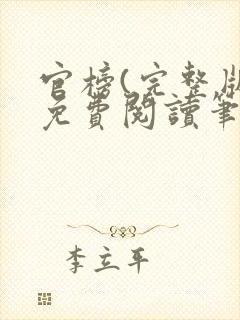 官榜(完整版
免費閱讀筆
李立平